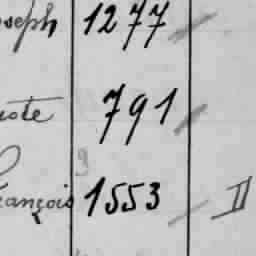 oseph 1277
iste 791
François 1553 II